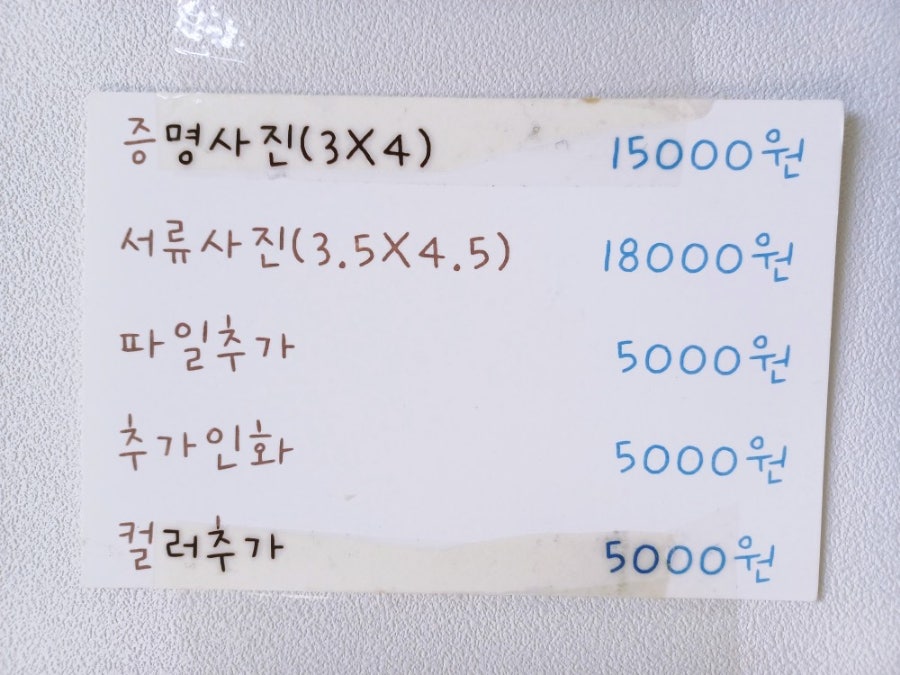 증명사진(3X4) 15000원
서류사진(3.5X4.5) 18000원
파일추가 5000원
추가인화 5000원
컬러추가 5000원